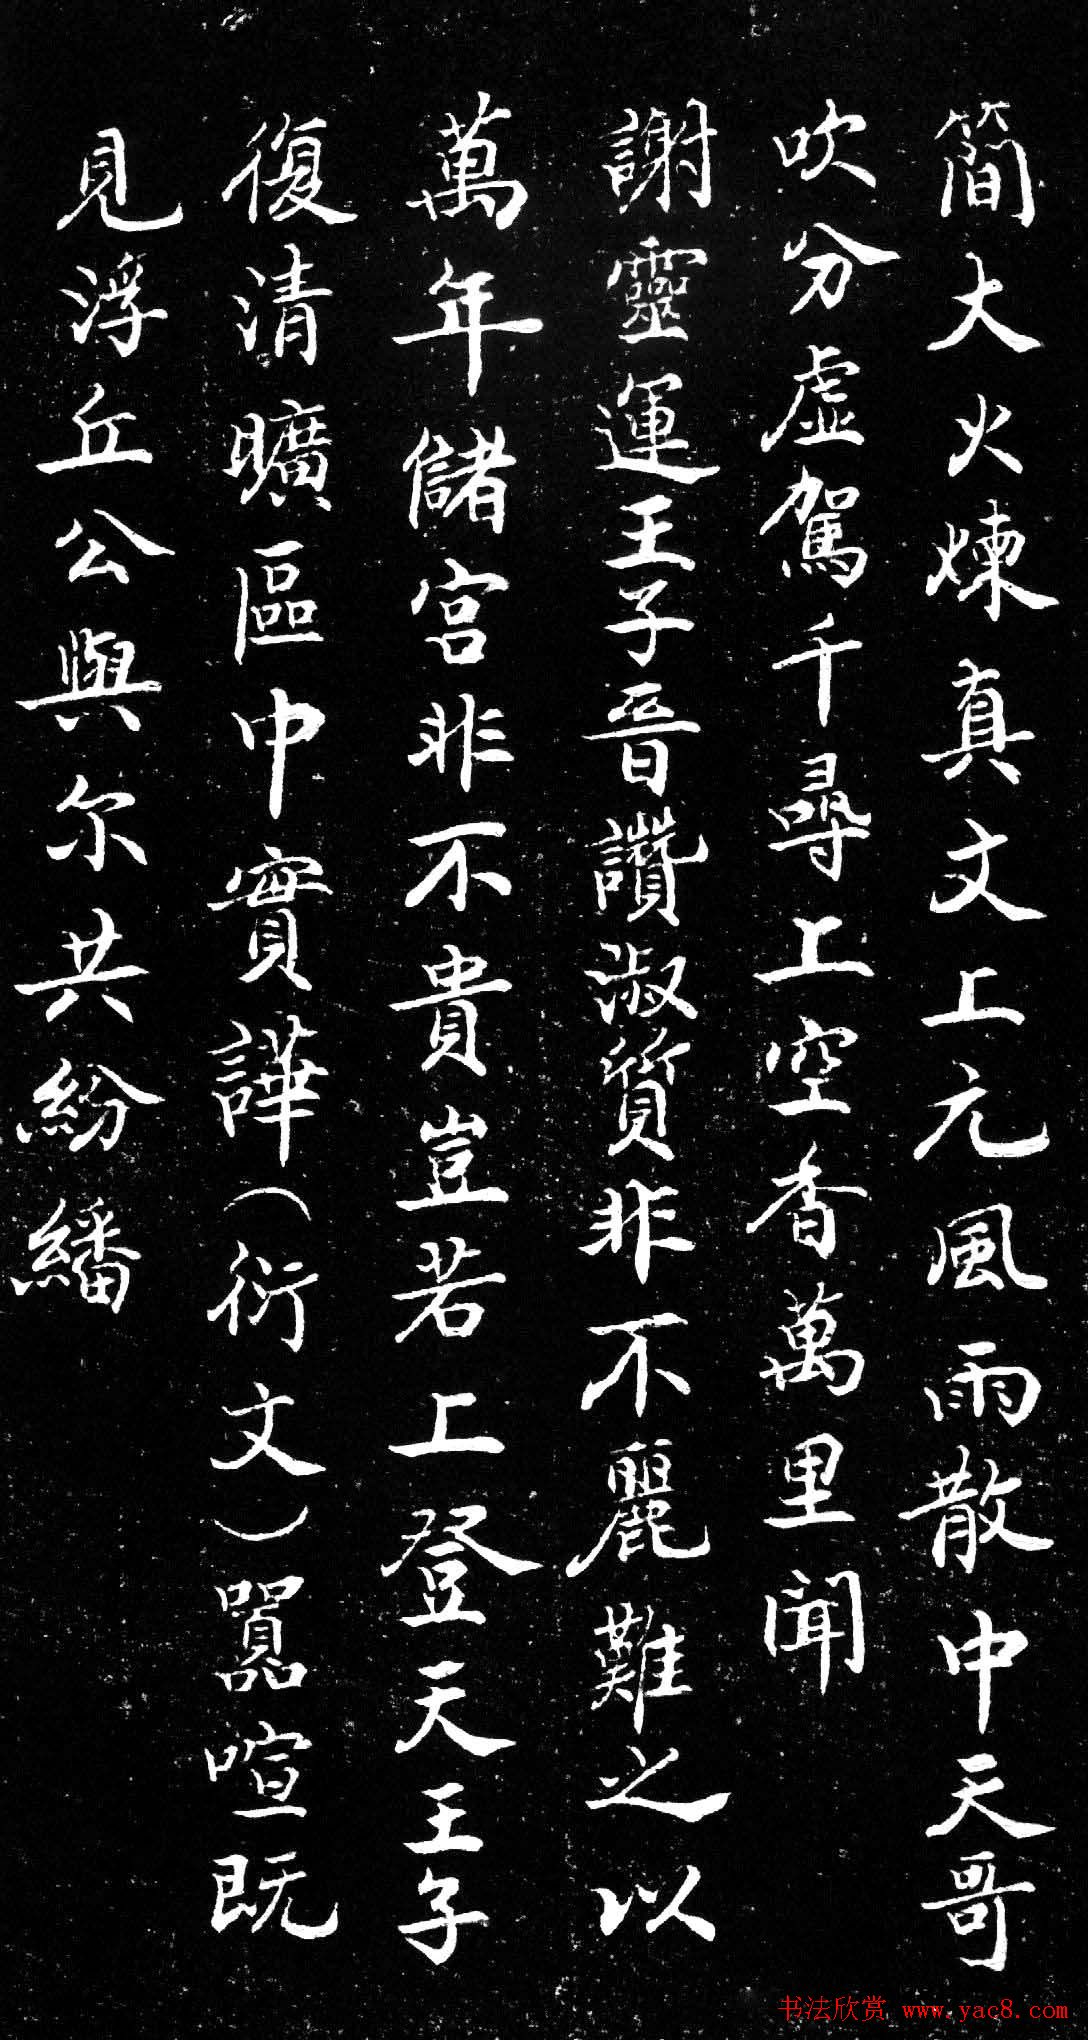 簡大火煉真文上元風雨散中天哥
吹分虚駕千尋上空香萬里聞
謝靈運王子晉讚淑質非不麗難之以
萬年儲宮非不貴豈若上登天王子
復清曠區中實譁（衍文）囂喧既
見浮丘公與尔共紛繙
书法欣赏 www.yac8.com